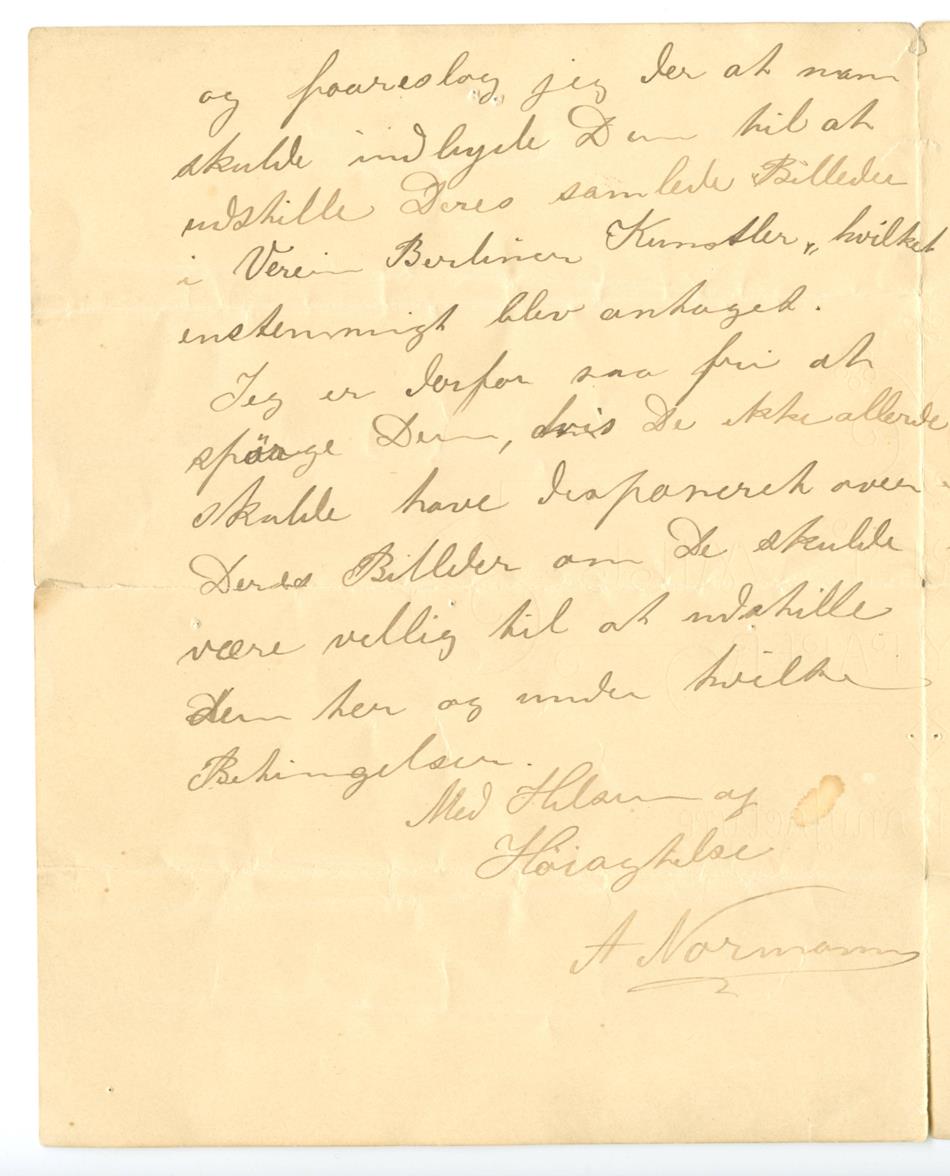 og faareslog jeg der at man
skulde indbyde Dem til at
udstille Deres samlede Billeder
i Verein Berliner Kunstler„ hvilket
enstemmigt blev antaget.
Jeg er derfor saa fri at
spörge Dem, hvis De ikke allerede
skulde have disponeret over
Deres Billeder om De skulde
være villig til at udstille
dem her og under hvilke
Betingelser.
Med Hilsen og
Høiagtelse
A Normann